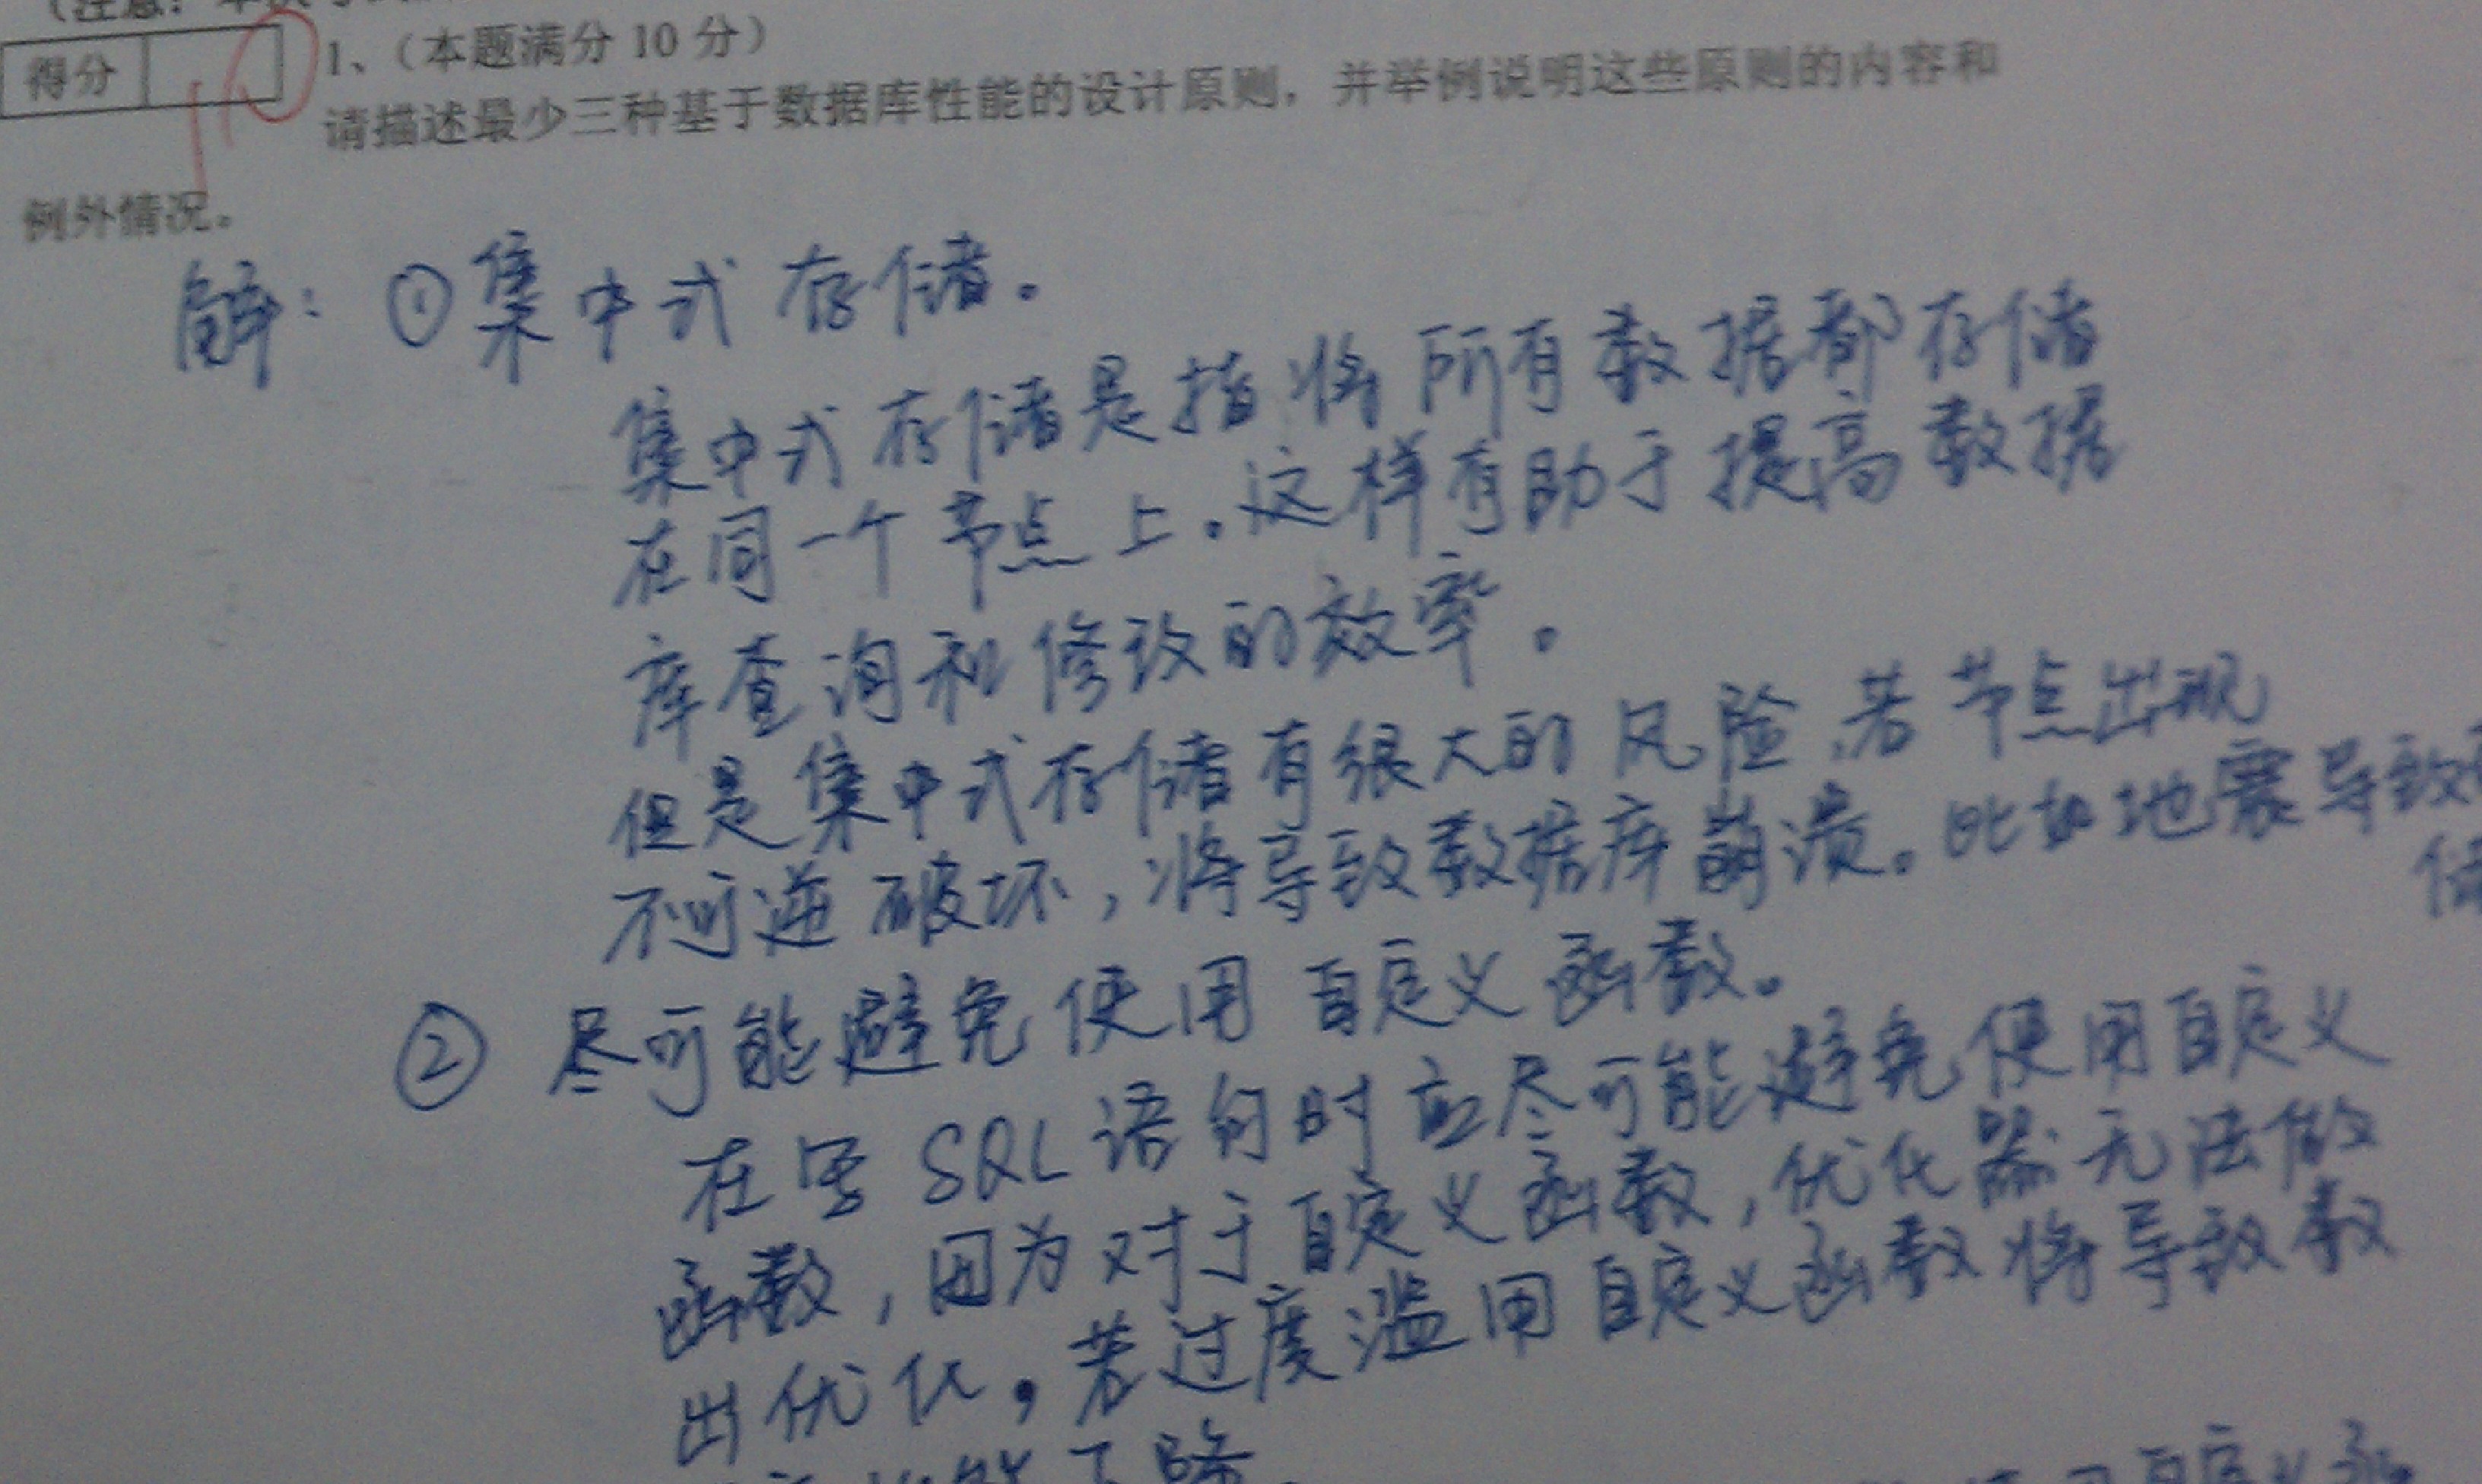 (注意:
得分 10
1、（本题满分 10 分）
请描述最少三种基于数据库性能的设计原则，并举例说明这些原则的内容和
例外情况。
解: ①集中式存储。
集中式存储是指将所有数据都存储
在同一个节点上。这样有助于提高数据
库查询和修改的效率。
但是集中式存储有很大的风险,若节点出现
不可逆破坏,将导致数据库崩溃。比如地震导致
储
② 尽可能避免使用自定义函数。
在写SQL语句时应尽可能避免使用自定义
函数,因为对于自定义函数,优化器无法做
出优化。若过度滥用自定义函数将导致数
能下降
用自定义函